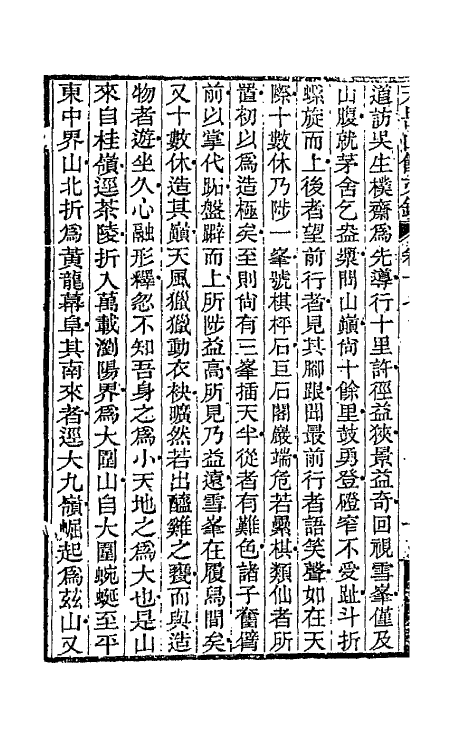 道訪吳生樸齋爲先導行十里許徑益狹景益奇回視雪峯僅及
山腹就茅舍乞盌漿問山巔尙十餘里鼓勇登磴窄不受趾斗折
螺旋而上後者望前行者見其腳跟出最前行者語笑聲如在天
際十數休乃陟一峯號棋枰石巨石閣嚴端危若纍棋類仙者所
置初以爲造極矣至則尙有三峯插天半從者有難色諸子奮臂
前以掌代跖盤躃而上所陟益高所見乃益遠雪峯在履舄間矣
又十數休造其巔天風獵獵動衣袂曠然若出醯雞之甕而與造
物者遊坐久心融形釋忽不知吾身之爲小天地之爲大也是山
來自桂嶺逕茶陵折入萬載瀏陽界爲大圍山自大圍蜿蜒至平
東中界山北折爲黃龍幕阜其南來者逕大九嶺崛起爲茲山又